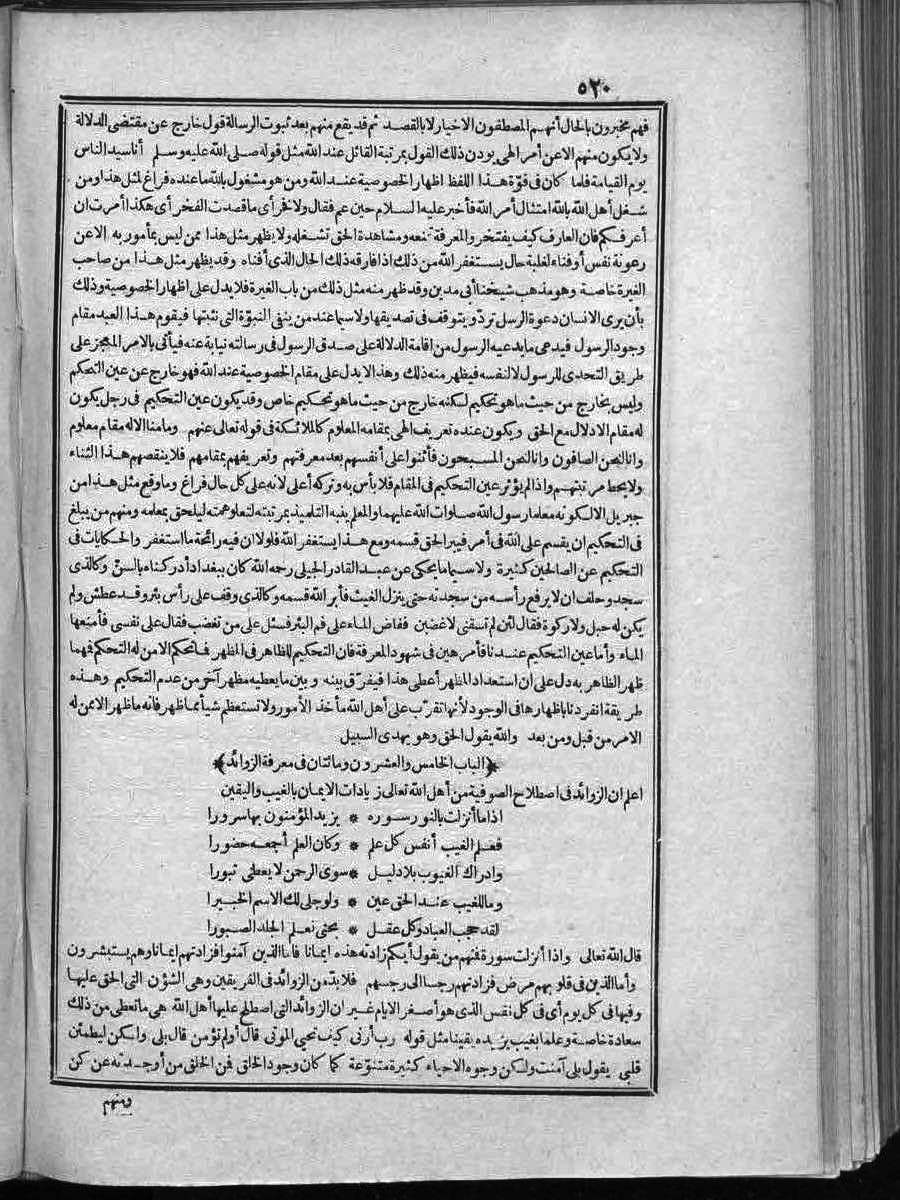 ٥٢٠
فهم مخبرون بالحال أنهم المصطفون الاخيار لا بالقصد ثم قد يقع منهم بعد ثبوت الرسالة قول خارج عن مقتضى الدلالة
ولا يكون منهم الا عن أمر الهى يوذن ذلك القول بمرتبة القائل عند الله مثل قوله صلى الله عليه وسلم أنا سيد الناس
يوم القيامة فلما كان فى قوة هذا اللفظ اظهار الخصوصية عند الله ومن هو مشغول بالله ما عنده فراغ لمثل هذا ومن
شغل أهل الله بالله امتثال أمر الله فأخبر عليه السلام حين عم فقال ولا فخر أى ما قصدت الفخر أى هكذا أمرت ان
أعرفكم فان العارف كيف يفتخر والمعرفة تمنعه ومشاهدة الحق تشغله ولا يظهر مثل هذا ممن ليس بمأمور به الا عن
رعونة نفس أو فناء لغلبة حال يستغفر الله من ذلك اذا فارقه ذلك الحال الذى أفناه وقد يظهر مثل هذا من صاحب
الغيرة خاصة وهو مذهب شيخنا أبى مدين وقد ظهر منه مثل ذلك من باب الغيرة فلا يدل على اظهار الخصوصية وذلك
بأن يرى الانسان دعوة الرسل تردّ ويتوقف فى تصديقها ولا سيما عند من ينفى النبوّة التى نثبتها فيقوم هذا العبد مقام
وجود الرسول فيدعى ما يدعيه الرسول من اقامة الدلالة على صدق الرسول فى رسالته نيابة عنه فيأتى بالامر المعجز على
طريق التحدى للرسول لا لنفسه فيظهر منه ذلك وهذا لا يدل على مقام الخصوصية عند الله فهو خارج عن عين التحكم
وليس بخارج من حيث ما هو تحكيم لكنه خارج من حيث ما هو تحكيم خاص وقد يكون عين التحكيم فى رجل يكون
له مقام الادلال مع الحق ويكون عنده تعريف الهى بمقامه المعلوم كالملائكة فى قوله تعالى عنهم وما منا الا له مقام معلوم
وانا لنحن الصافون وانا لنحن المسبحون فأثنوا على أنفسهم بعد معرفتهم وتعريفهم بمقامهم فلا ينقصهم هذا الثناء
ولا يحط مرتبتهم واذا لم يؤثر عين التحكيم فى المقام فلا بأس به وتركه أعلى لانه على كل حال فراغ وما وقع مثل هذا من
جبريل الا لكونه معلما رسول الله صلوات الله عليهما والمعلم ينبه التلميذ بمرتبته لتعلو همته ليلحق بمعلمه ومنهم من يبلغ
فى التحكيم ان يقسم على الله فى أمر فيبر الحق قسمه ومع هذا يستغفر الله فلولا ان فيه رائحة ما استغفر والحكايات فى
التحكيم عن الصالحين كثيرة ولا سيما ما يحكى عن عبد القادر الجيلى رحمه الله كان ببغداد أدركناه بالسنّ وكالذى
سجد وحلف ان لا يرفع رأسه من سجدته حتى ينزل الغيث فأبر الله قسمه وكالذى وقف على رأس بئر وقد عطش ولم
يكن له حبل ولا ركوة فقال لئن لم تسقنى لاغضبن ففاض الماء على فم البئر فسئل على من تغضب فقال على نفسى فأمنعها
الماء وأما عين التحكيم عندنا فأمر هين فى شهود المعرفة فان التحكيم للظاهر فى المظهر فما تحكم الا من له التحكم فهما
ظهر الظاهر به دل على ان استعداد المظهر أعطى هذا فيفرق بينه وبين ما يعطيه مظهر آخر من عدم التحكيم وهذه
طريقة انفردنا باظهارها فى الوجود لأنها تقرّب على أهل الله مأخذ الأمور ولا تستعظم شيأ مما ظهر فانه ما ظهر الا ممن له
الامر من قبل ومن بعد والله يقول الحق وهو يهدى السبيل
﴿الباب الخامس والعشرون ومائتان فى معرفة الزوائد﴾
اعلم ان الزوائد فى اصطلاح الصوفية من أهل الله تعالى زيادات الايمان بالغيب واليقين
اذا ما أنزلت بالنور سوره * يزيد المؤمنون بها سرورا
فعلم الغيب أنفس كل علم * وكان العلم أجمعه حضورا
وادراك الغيوب بلا دليل * سوى الرحمن لا يعطى ثبورا
وما للغيب عند الحق عين * ولو جلى لك الاسم الخبيرا
لقد حجب العباد وكل عقل * بحتى نعلم الجلد الصبورا
قال الله تعالى واذا أنزلت سورة فمنهم من يقول أيكم زادته هذه ايمانا فاما الذين آمنوا فزادتهم ايمانا وهم يستبشرون
وأما الذين فى قلوبهم مرض فزادتهم رجسا الى رجسهم فلا بد من الزوائد فى الفريقين وهى الشؤن التى الحق عليها
وفيها فى كل يوم أى فى كل نفس الذى هو أصغر الايام غير ان الزوائد التى اصطلح عليها أهل الله هى ما تعطى من ذلك
سعادة خاصة وعلما بغيب يزيده يقينا مثل قوله رب أرنى كيف تحيى الموتى قال أولم تؤمن قال بلى ولكن ليطمئن
قلبى يقول بلى آمنت ولكن وجوه الاحياء كثيرة متنوّعة كما كان وجود الخلق فمن الخلق من أوجدته عن كن
ومنهم